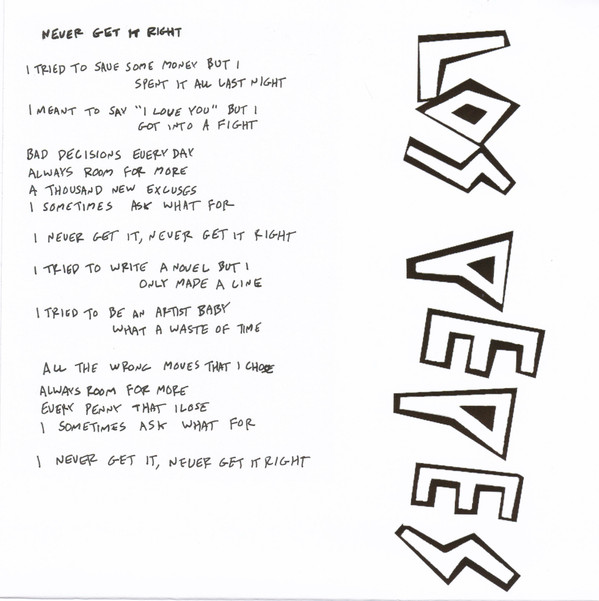 NEVER GET IT RIGHT
I TRIED TO SAVE SOME MONEY BUT I
SPENT IT ALL LAST NIGHT
I MEANT TO SAY "I LOVE YOU" BUT I
GOT INTO A FIGHT
BAD DECISIONS EVERY DAY
ALWAYS ROOM FOR MORE
A THOUSAND NEW EXCUSES
I SOMETIMES ASK WHAT FOR
I NEVER GET IT, NEVER GET IT RIGHT
I TRIED TO WRITE A NOVEL BUT I
ONLY MADE A LINE
I TRIED TO BE AN ARTIST BABY
WHAT A WASTE OF TIME
ALL THE WRONG MOVES THAT I CHOSE
ALWAYS ROOM FOR MORE
EVERY PENNY THAT I LOSE
I SOMETIMES ASK WHAT FOR
I NEVER GET IT, NEVER GET IT RIGHT
LOS YEYES